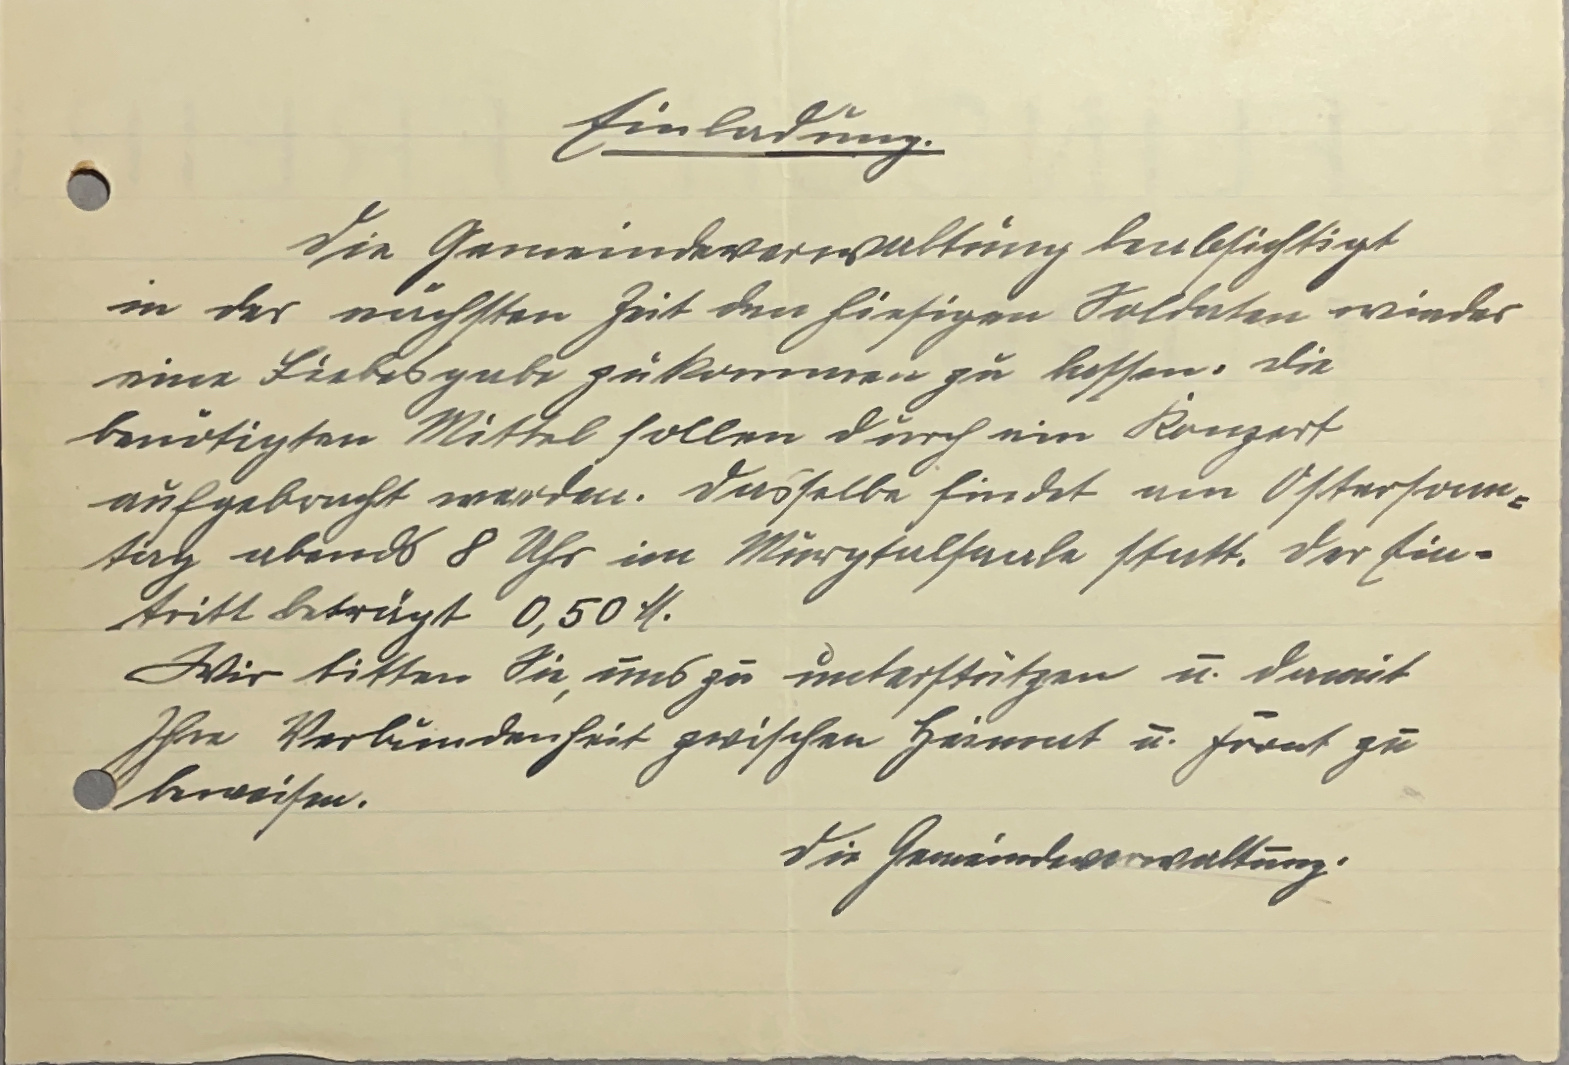 Einladung.
Die Gemeindeverwaltung beabsichtigt
in der nächsten Zeit den hiesigen Soldaten wieder
eine Liebesgabe zukommen zu lassen. Die
benötigten Mittel sollen durch ein Konzert
aufgebracht werden. Dasselbe findet am Ostersonn=
tag abends 8 Uhr im Murgtalsaale statt. Der Ein-
tritt beträgt 0,50 M.
Wir bitten Sie, uns zu unterstützen u. damit
Ihre Verbundenheit zwischen Heimat u. Front zu
beweisen.
Die Gemeindeverwaltung.